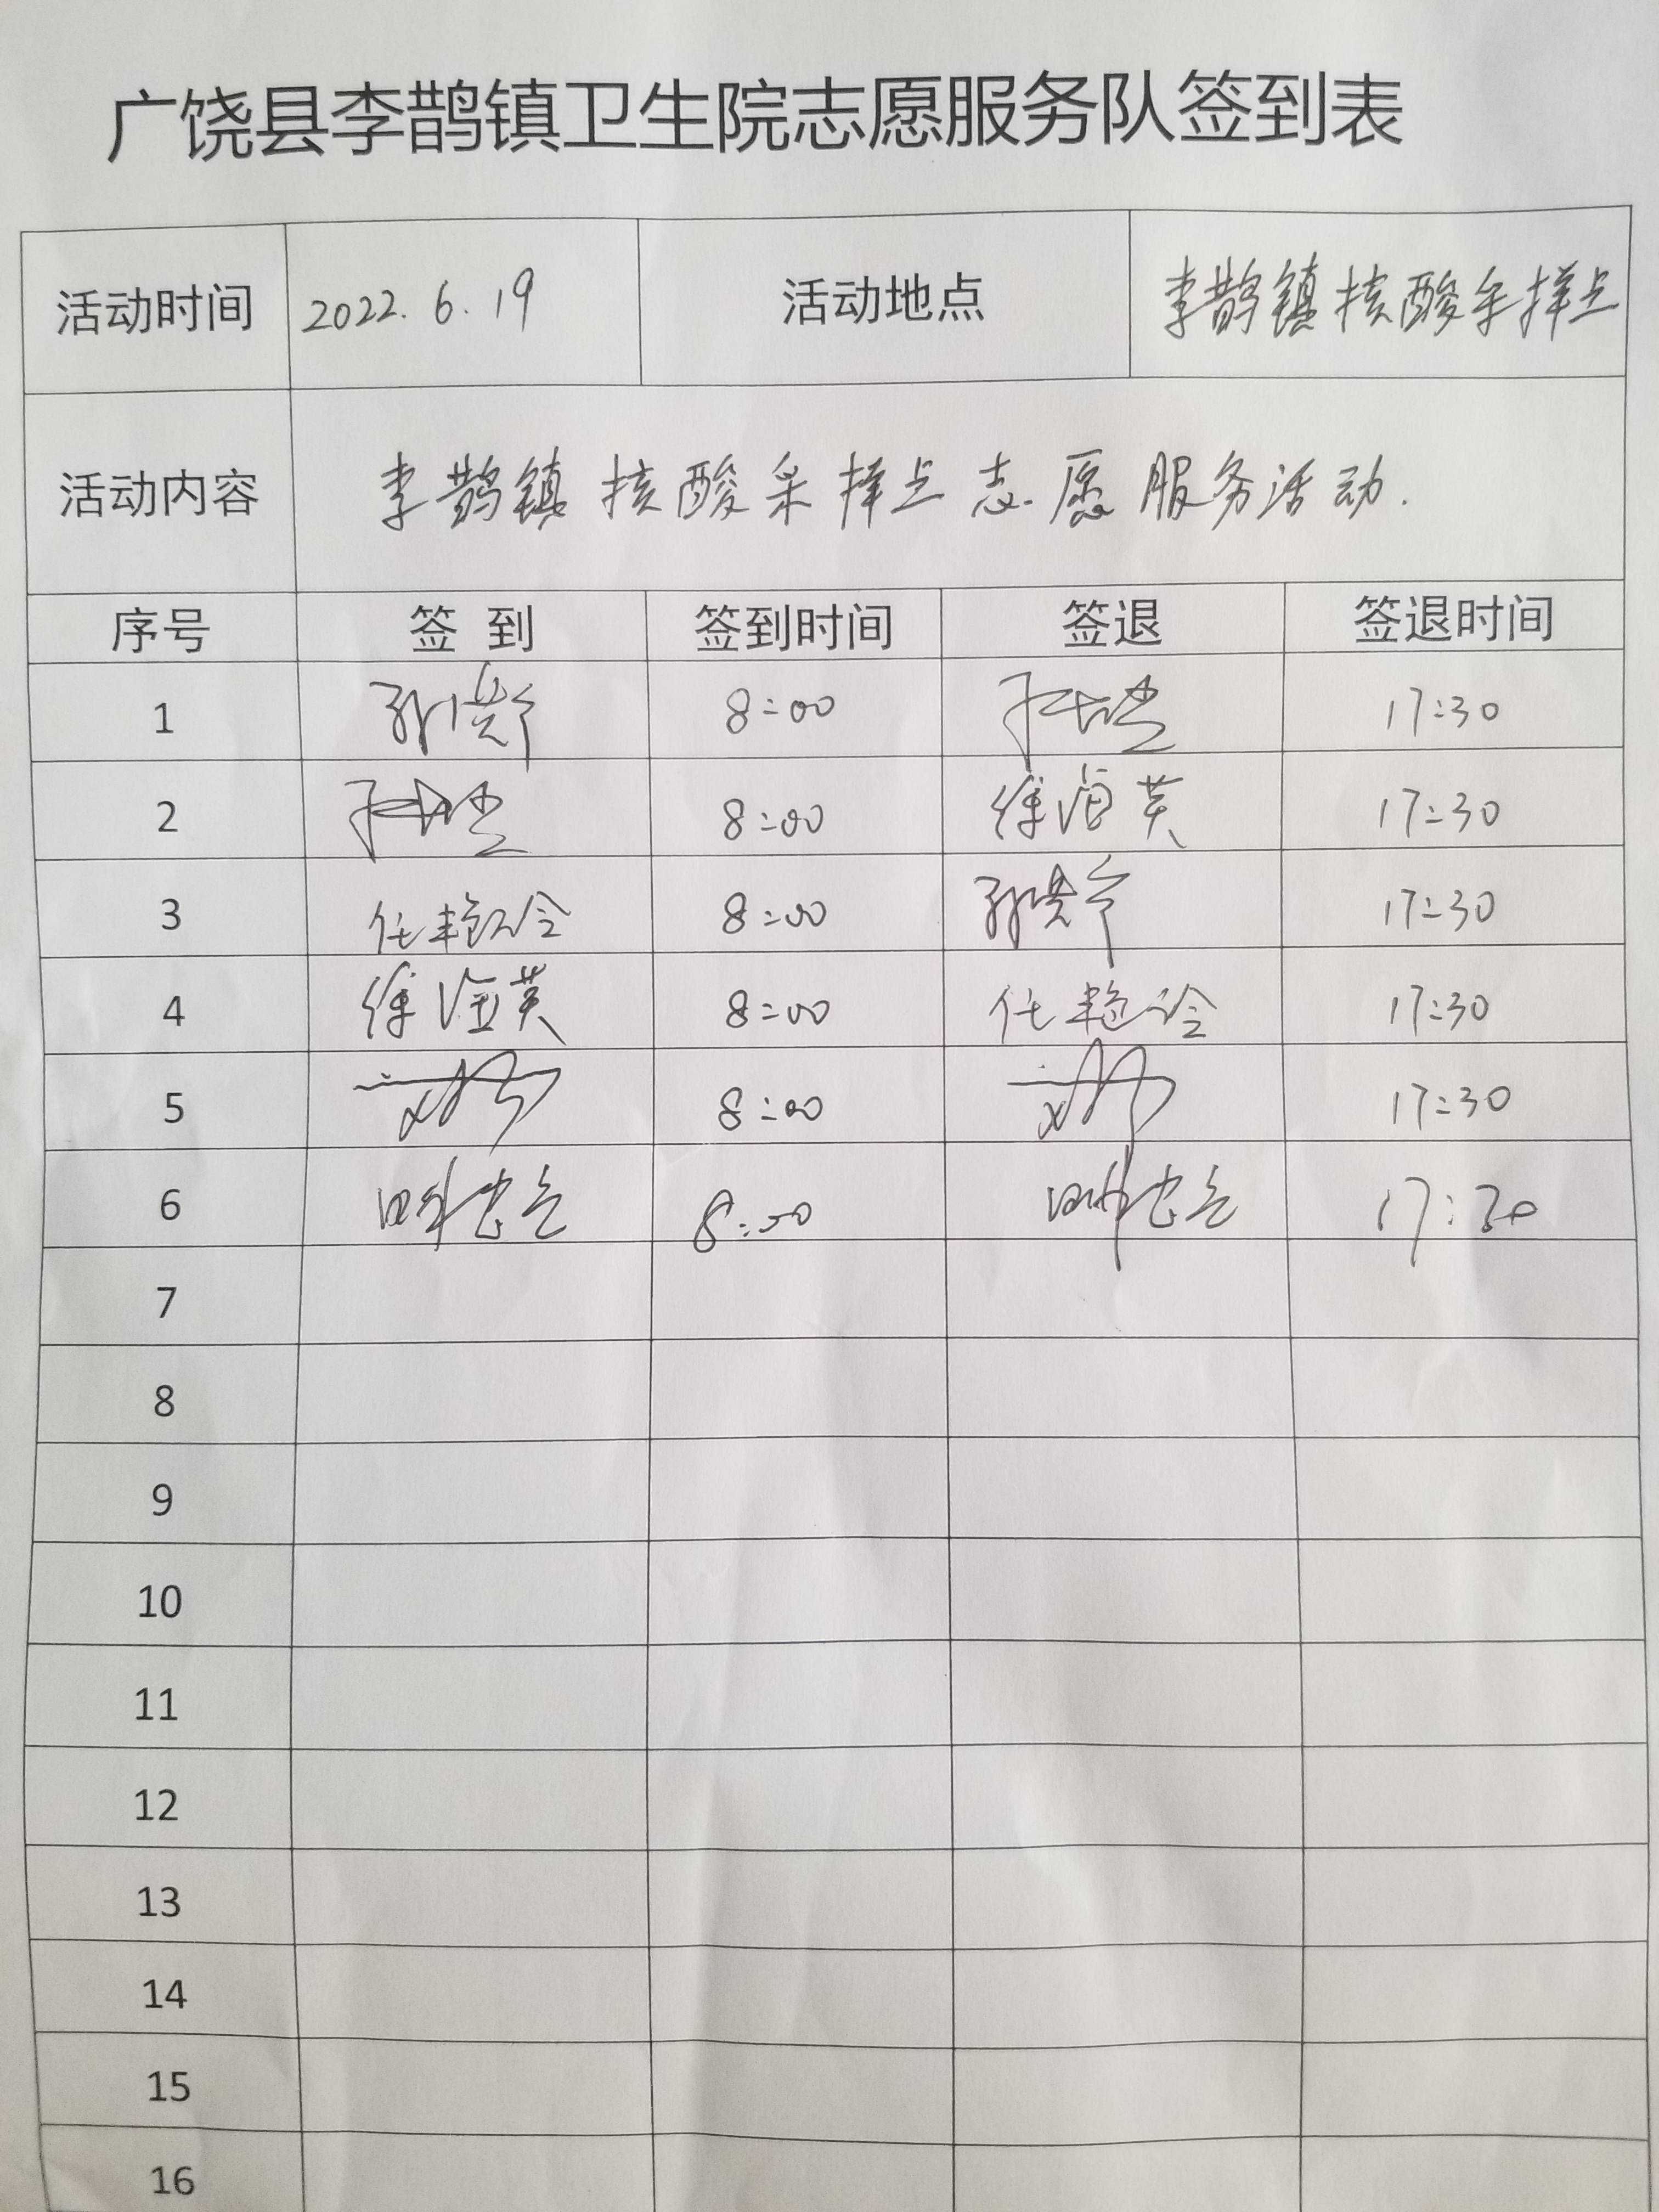 广饶县李鹊镇卫生院志愿服务队签到表
活动时间 2022.6.19 活动地点 李鹊镇核酸采样点
活动内容 李鹊镇核酸采样点志愿服务活动.
序号 签到 签到时间 签退 签退时间
1 8:00 17:30
2 8:00 徐海英 17:30
3 任艳玲 8:00 17:30
4 徐海英 8:00 任艳玲 17:30
5 8:00 17:30
6 8:00 17:30
7
8
9
10
11
12
13
14
15
16